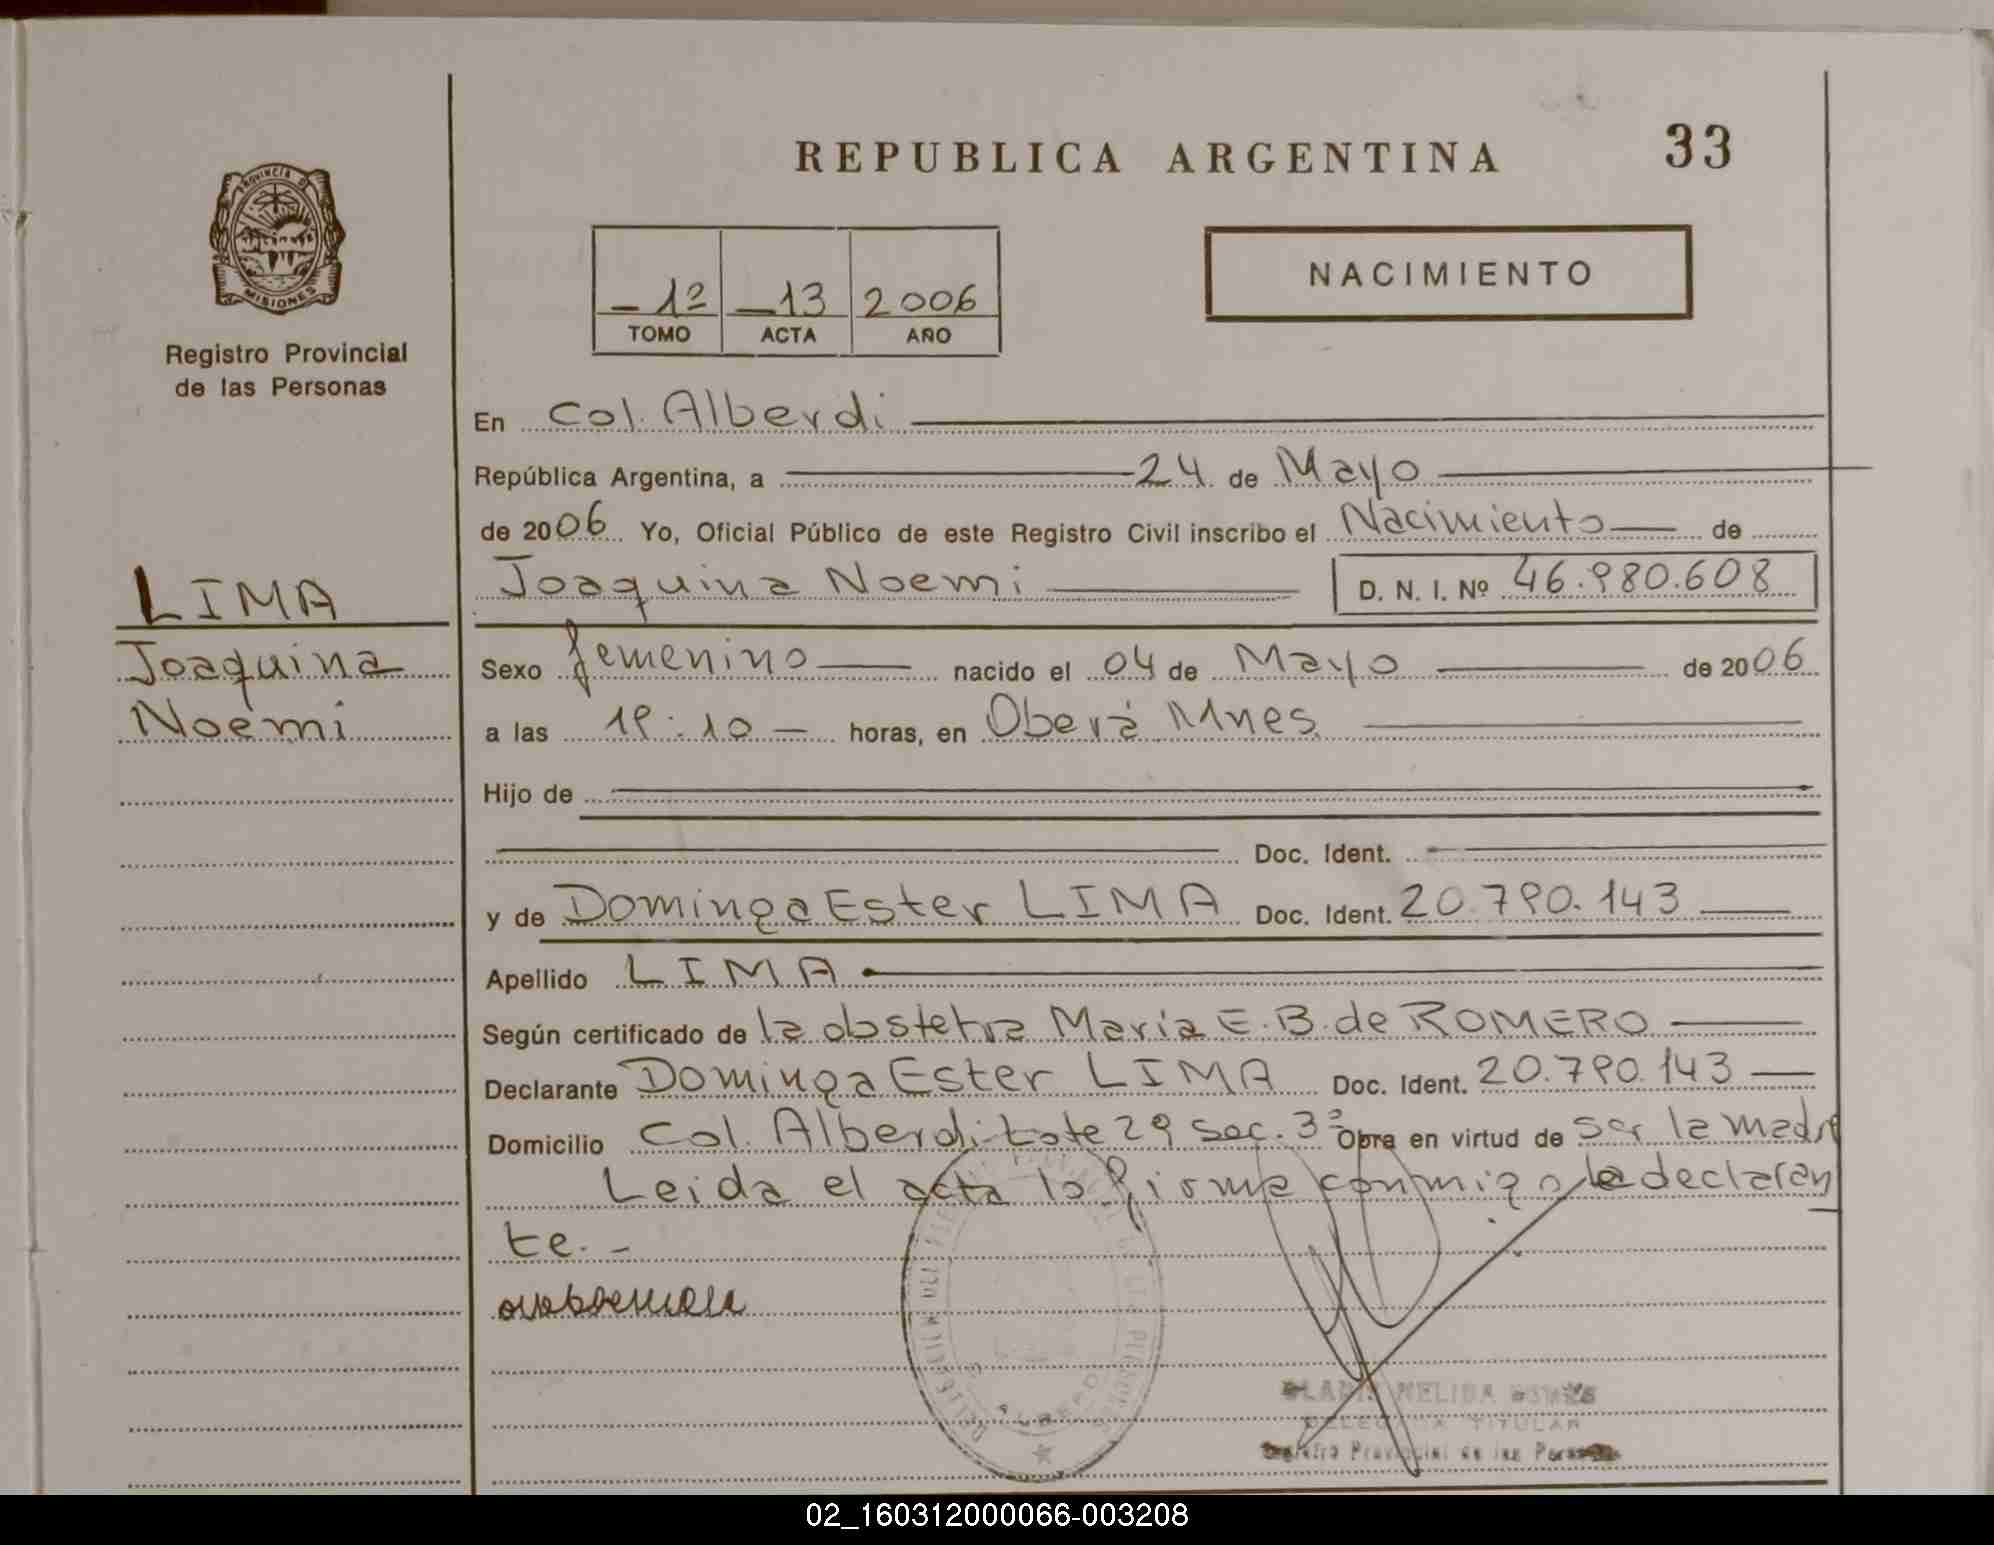 REPUBLICA ARGENTINA 33
PROVINCIA DE
MISIONES
Registro Provincial
de las Personas
NACIMIENTO
- 1º - 13 2006
TOMO ACTA AÑO
En Col. Alberdi
República Argentina, a 24 de Mayo
de 2006 Yo, Oficial Público de este Registro Civil inscribo el Nacimiento de
Joaquina Noemi D. N. I. Nº 46.980.608
LIMA
Joaquina
Noemi
Sexo femenino nacido el 04 de Mayo de 2006
a las 19:10 - horas, en Oberá Mnes.
Hijo de
Doc. Ident.
y de Dominga Ester LIMA Doc. Ident. 20.790.143
Apellido LIMA
Según certificado de la obstetra María E. B. de ROMERO
Declarante Dominga Ester LIMA Doc. Ident. 20.790.143
Domicilio Col. Alberdi Lote 29 sec. 3ª Obra en virtud de ser la madre
Leida el acta la firma conmigo la declaran
te. -
DELEGA TITULAR
Registro Provincial de las Personas
02_160312000066-003208